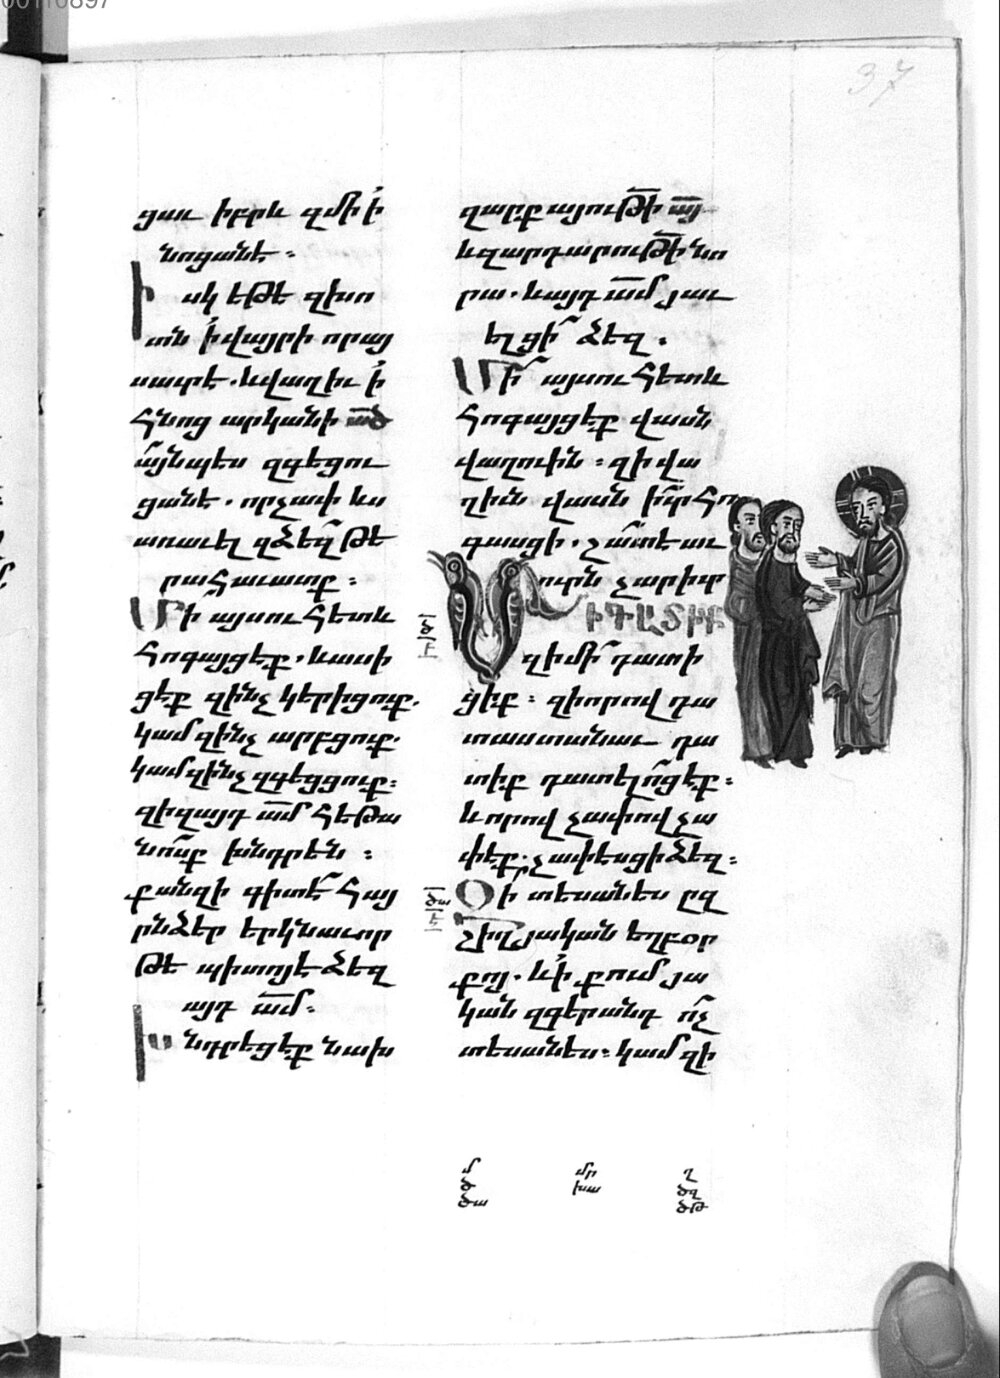 00110897
37
ցաւ իբրև զմի ի
նոցանէ։
Իսկ եթե զխո
տն ի վայրի որայ
սաւրէ. և վաղիւ ի
հնոց արկանի ած
այնպես զգեցու
ցանե. որչափ ևս
առաւել զձեզ թե
րահաւատք։
Մի այսուհետև
հոգայցեք. և ասի
ցեք զինչ կերիցուք.
կամ զինչ արբցուք.
կամ զինչ զգեցցուք։
զի զայդ ամ հեթա
նոսք խնդրեն։
քանզի գիտէ հայ
րն ձեր երկնաւոր
թե պիտոյ է ձեզ
այդ ամ։
Խնդրեցեք նախ
զարքայութի այ
և զարդարութի նո
րա. և այդ ամ յաւ
ելցի ձեզ։
Մի այսուհետև
հոգայցեք վասն
վաղուին։ զի վա
ղիւն վասն իւր հո
գասցի. շատ է աւ
ուրն չարիւր
Մի ԴԱՏԻՔ
զի մի դատի
ցիք։ զի որով դա
տաստանաւ դա
տիք դատելոցեք։
և որով չափով չա
փեք. չափեսցի ձեզ։
Զի տեսանես ըզ
շիւղ յական եղբօր
քոյ. և ի քում յա
կան զգերանդ ոչ
տեսանես. կամ զի
մ
ծ
ծա
մր
խա
ղ
ծզ
ծթ